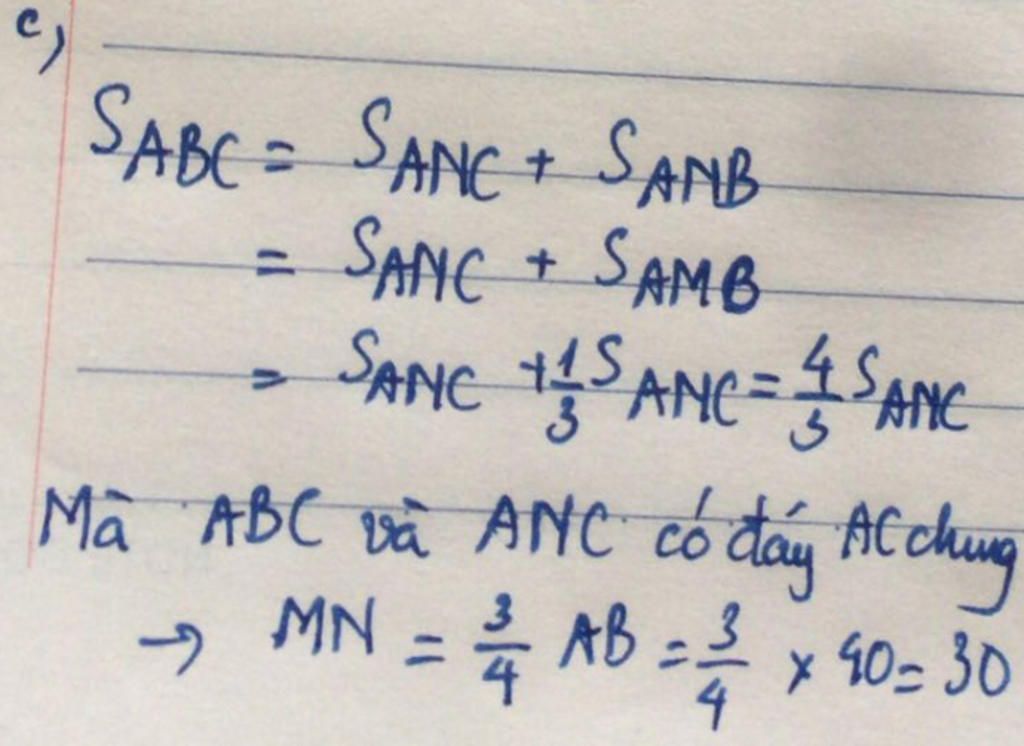 c,
S_ABC = S_ANC + S_ANB
= S_ANC + S_AMB
= S_ANC + 1/3 S_ANC = 4/3 S_ANC
Mà ABC và ANC có đáy AC chung
→ MN = 3/4 AB = 3/4 x 40 = 30